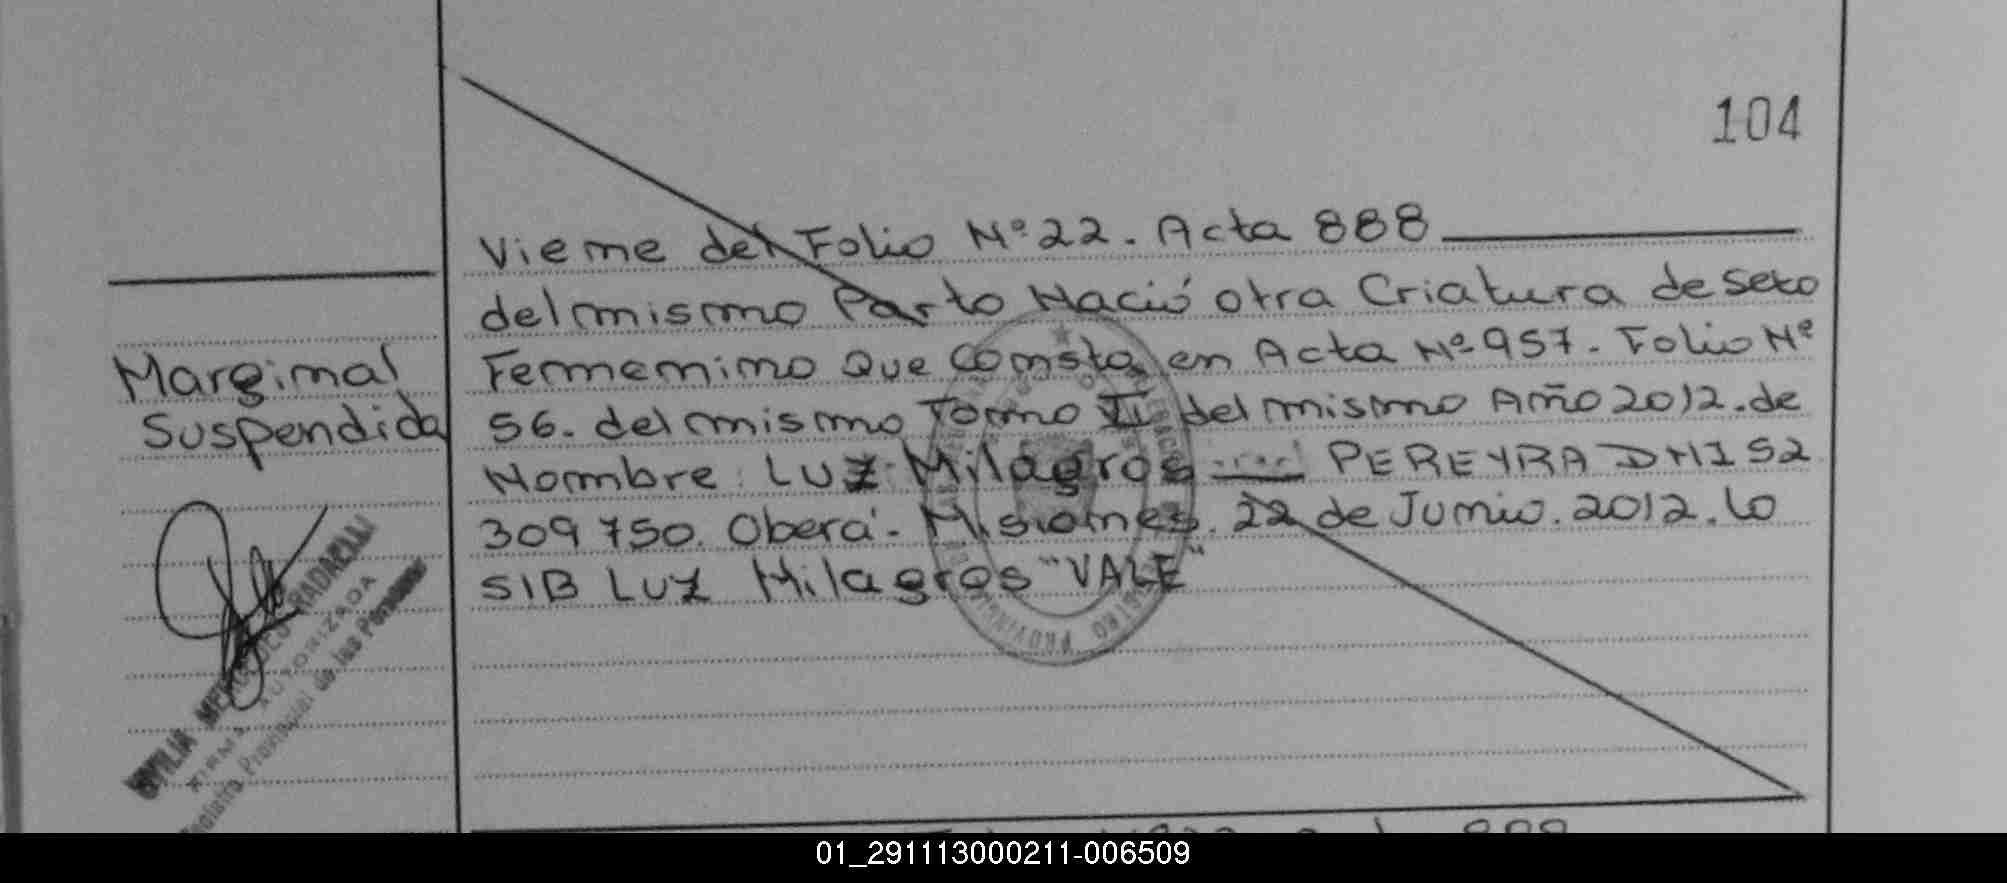 104
Viene del Folio Nº 22. Acta 888
del mismo Parto Nació otra Criatura de Sexo
Femenino Que Consta en Acta Nº 957. Folio Nº
56. del mismo Tomo II del mismo Año 2012. de
Nombre: LUZ Milagros PEREYRA DNI 52
309750. Oberá - Misiones. 22 de Junio. 2012. lo
S/B LUZ Milagros "VALE"
Marginal
Suspendida
RADAELLI
FIRMA AUTORIZADA
Registro Provincial de las Personas
REGISTRO PROVINCIAL
01_291113000211-006509